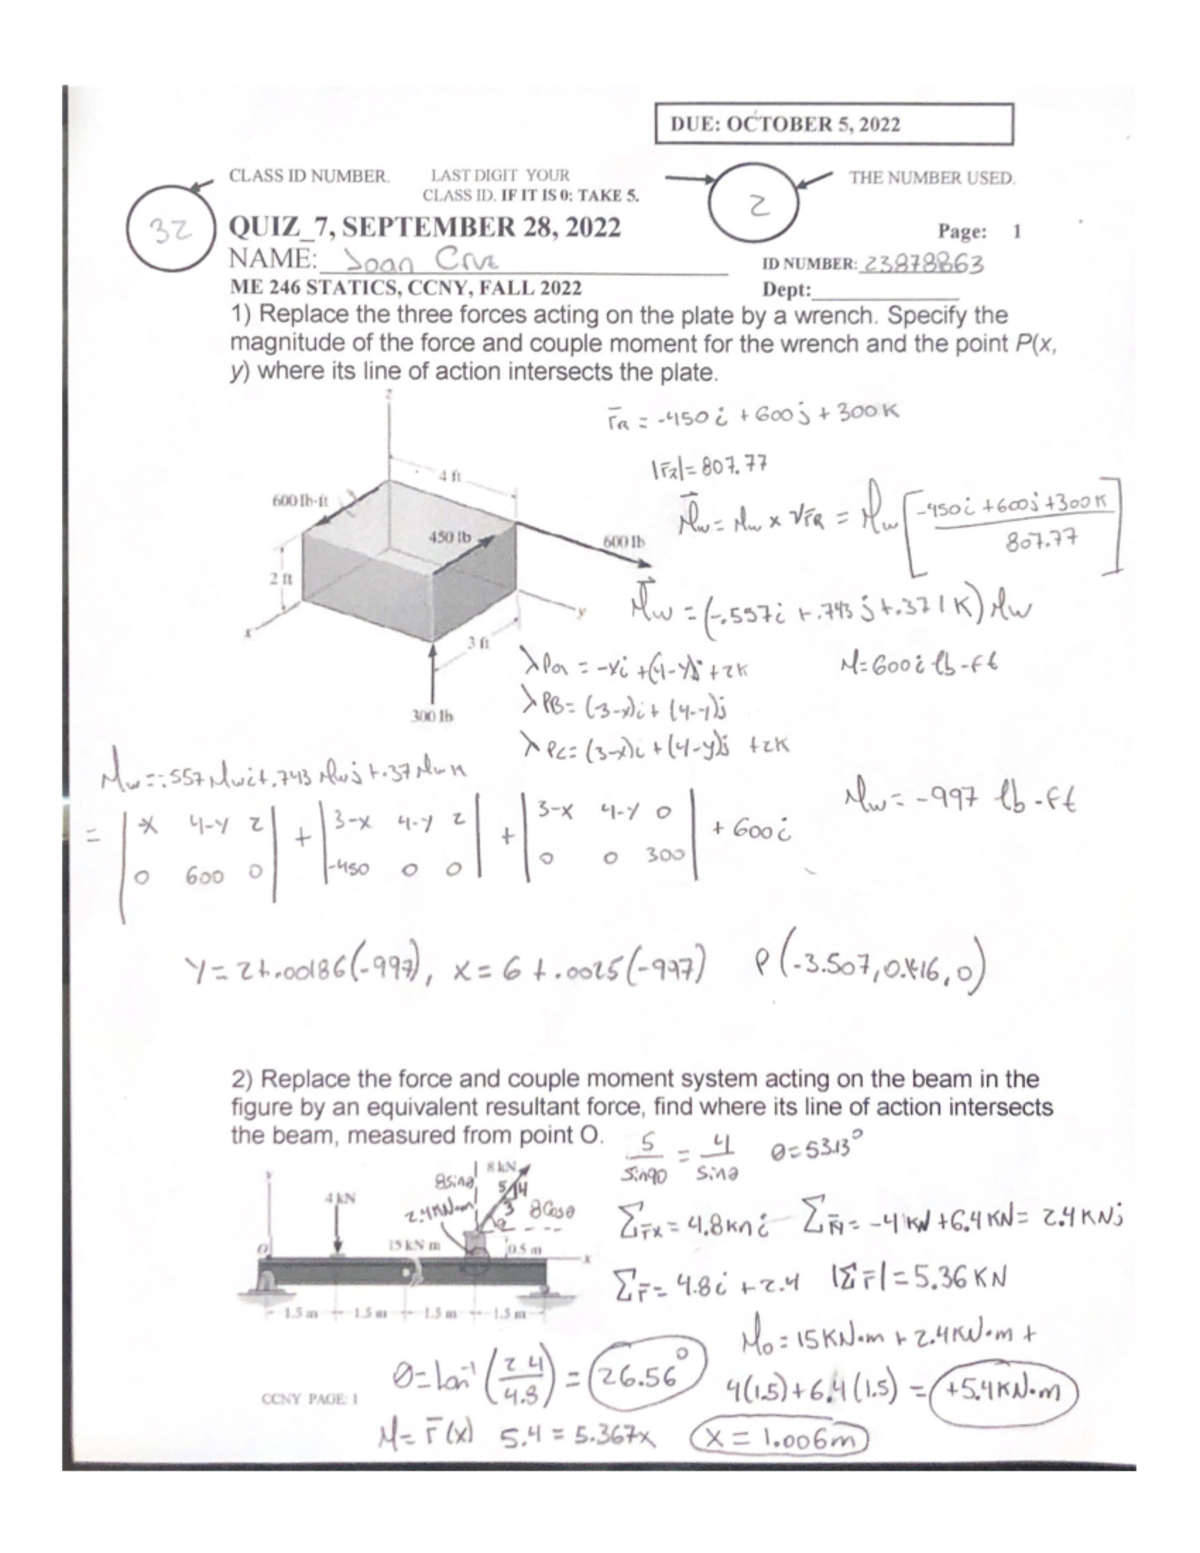 DUE: OCTOBER 5, 2022
CLASS ID NUMBER. LAST DIGIT YOUR
CLASS ID. IF IT IS 0: TAKE 5.
2
THE NUMBER USED.
32
QUIZ_7, SEPTEMBER 28, 2022
Page: 1
NAME: Joan Cruz
ID NUMBER: 23878863
ME 246 STATICS, CCNY, FALL 2022
Dept:
1) Replace the three forces acting on the plate by a wrench. Specify the
magnitude of the force and couple moment for the wrench and the point P(x,
y) where its line of action intersects the plate.
F̄R = -450i + 600j + 300K
|F̄R| = 807.77
M̄w = Mw x VF̄R = Mw [-450i + 600j + 300K / 807.77]
z
4 ft
600 lb·ft
450 lb
600 lb
2 ft
x
y
3 ft
300 lb
M̄w = (-.557i + .743j + .371K) Mw
λPa = -xi + (4-y)j + 2K
M = 600i lb-ft
λPB = (3-x)i + (4-y)j
λPC = (3-x)i + (4-y)j + 2K
Mw = -.557Mwi + .743Mwj + .37MwK
Mw = -997 lb-ft
= | -x 4-y 2 | + | 3-x 4-y 2 | + | 3-x 4-y 0 | + 600i
| 0 600 0 | | -450 0 0 | | 0 0 300 |
Y = 2+.00186(-997), x = 6+.0025(-997) P(-3.507, 0.416, 0)
2) Replace the force and couple moment system acting on the beam in the
figure by an equivalent resultant force, find where its line of action intersects
the beam, measured from point O.
5/sin90 = 4/sinθ θ=53.13°
y
4 kN
8sinθ
8 kN
5 4
3
8cosθ
2.4KN·m
15 kN m
0.5 m
O
x
1.5 m 1.5 m 1.5 m 1.5 m
ΣF̄x = 4.8kni ΣF̄y = -4KN + 6.4KN = 2.4KNj
ΣF̄ = 4.8i + 2.4 |ΣF̄| = 5.36KN
Mo = 15KN·m + 2.4KN·m +
4(1.5) + 6.4(1.5) = +5.4KN·m
θ = tan⁻¹(2.4/4.8) = 26.56°
CCNY PAGE: 1
M = F̄(x) 5.4 = 5.367x x = 1.006m